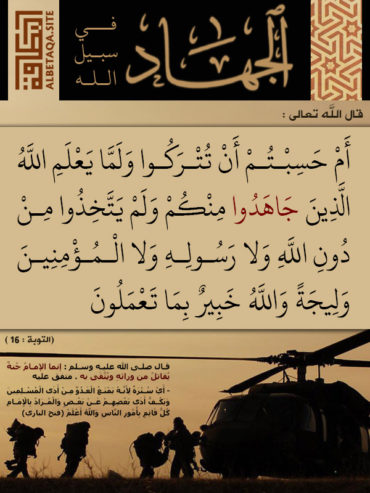 البطاقة
ALBETAQA.SITE
الجهاد
في
سبيل
الله
قال الله تعالى :
أَمْ حَسِبْتُمْ أَنْ تُتْرَكُوا وَلَمَّا يَعْلَمِ اللَّهُ
الَّذِينَ جَاهَدُوا مِنْكُمْ وَلَمْ يَتَّخِذُوا مِنْ
دُونِ اللَّهِ وَلَا رَسُولِهِ وَلَا الْمُؤْمِنِينَ
وَلِيجَةً وَاللَّهُ خَبِيرٌ بِمَا تَعْمَلُونَ
(التوبة : 16 )
قال صلى الله عليه وسلم : إنما الإمامُ جُنةٌ
يُقاتَلُ من ورائِهِ ويُتَّقى به . متفق عليه
- أيْ سُتْرَةٌ لأنهُ يمنَعُ العَدُوَّ مِنْ أذَى المُسْلمينَ
ويَكُفُّ أذى بَعْضِهِمْ عَنْ بَعْضٍ والمُرَادُ بالإمام
كُلُّ قائِمٍ بأمُورِ النَّاسِ واللهُ أعْلَمُ (فتح الباري)